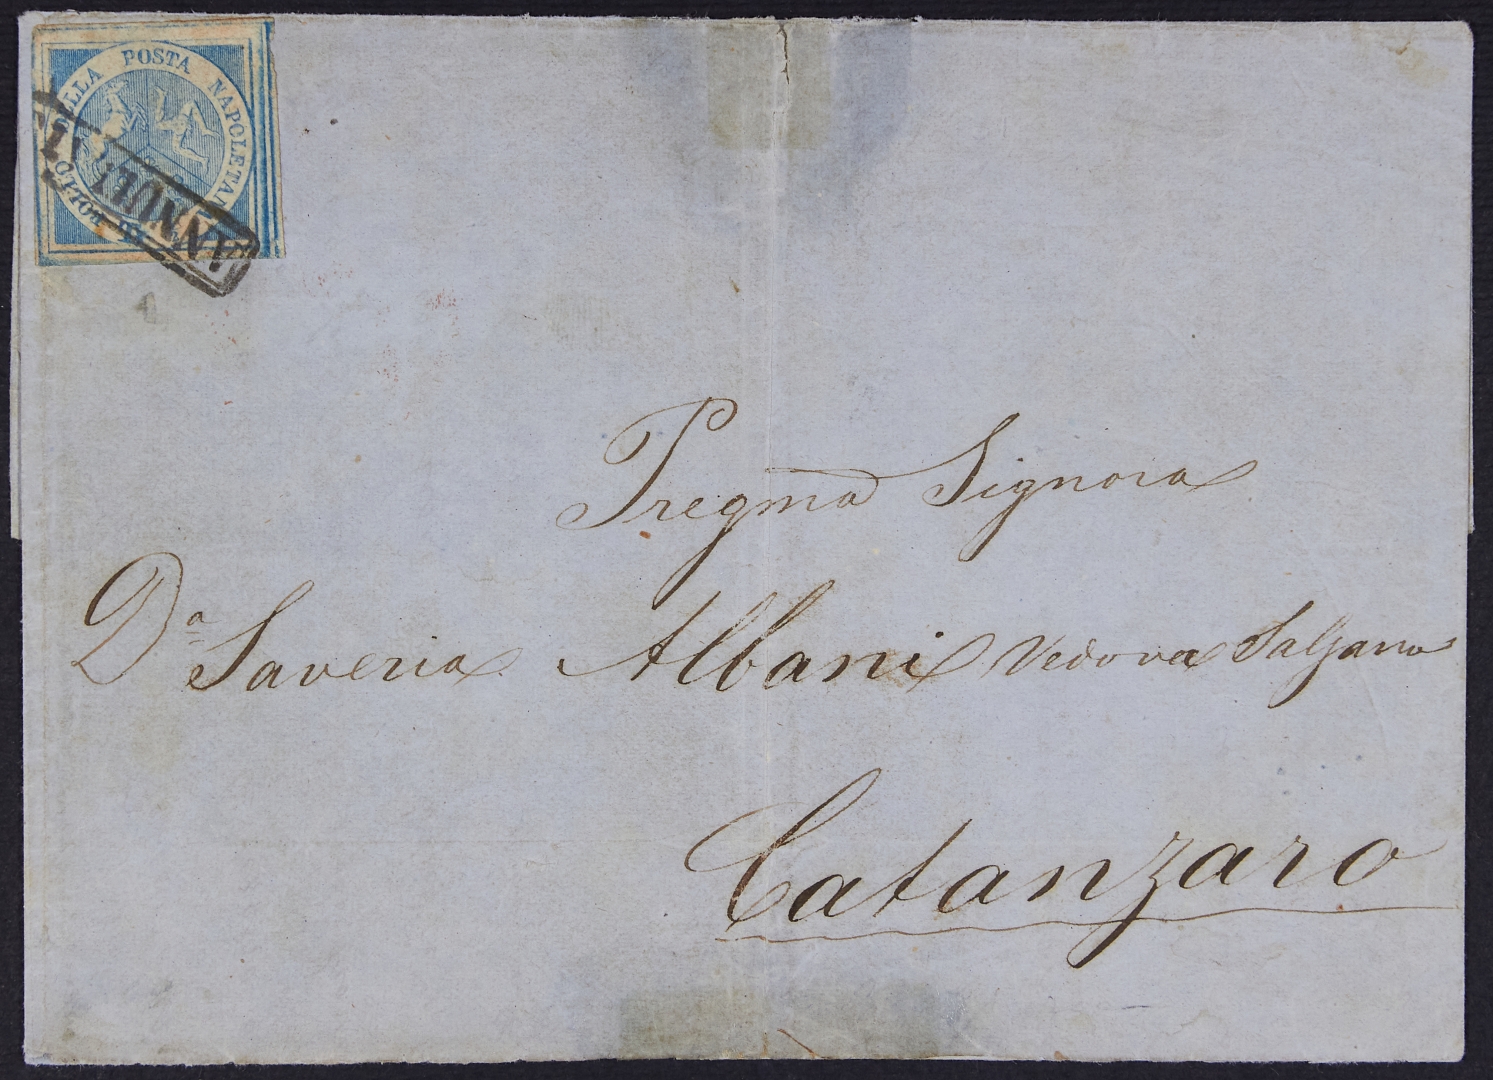 BOLLO DELLA POSTA NAPOLETANA
ANNULLATO
Pregma Signora
Da Saveria Albani Vedova Salzano
Catanzaro